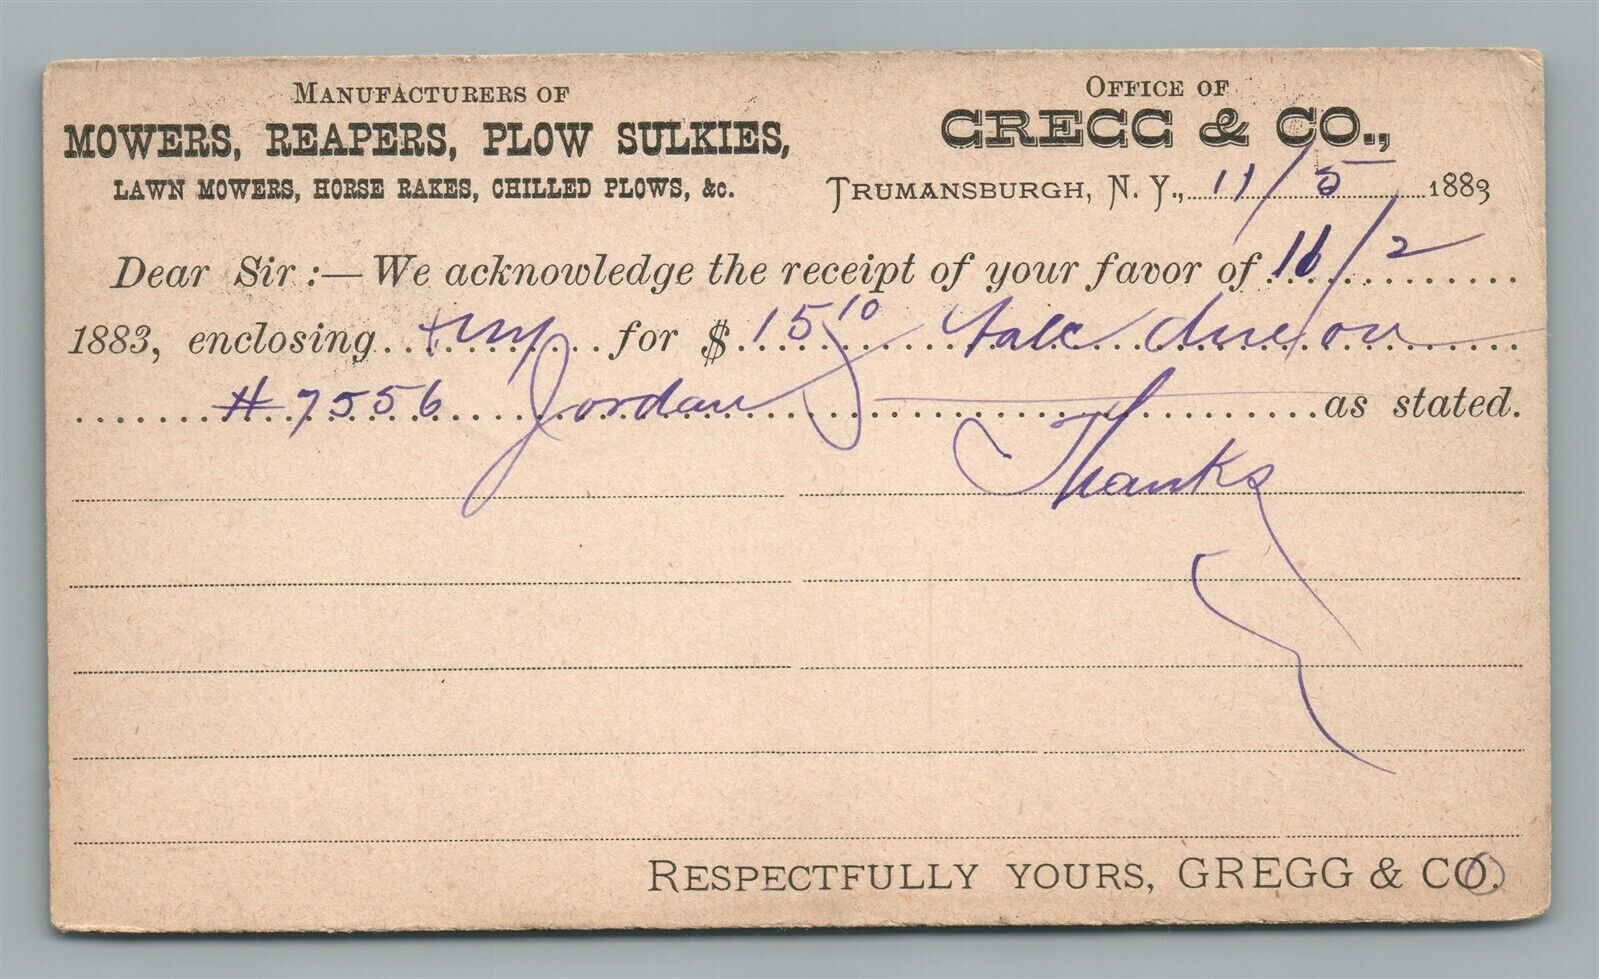 MANUFACTURERS OF
MOWERS, REAPERS, PLOW SULKIES,
LAWN MOWERS, HORSE RAKES, CHILLED PLOWS, &c.
OFFICE OF
GREGG & CO.,
TRUMANSBURGH, N. Y., 11/5 1883
Dear Sir:—We acknowledge the receipt of your favor of 11/2
1883, enclosing for $ 15 10 due on
# 7556 Jordan as stated.
Thanks
RESPECTFULLY YOURS, GREGG & CO.